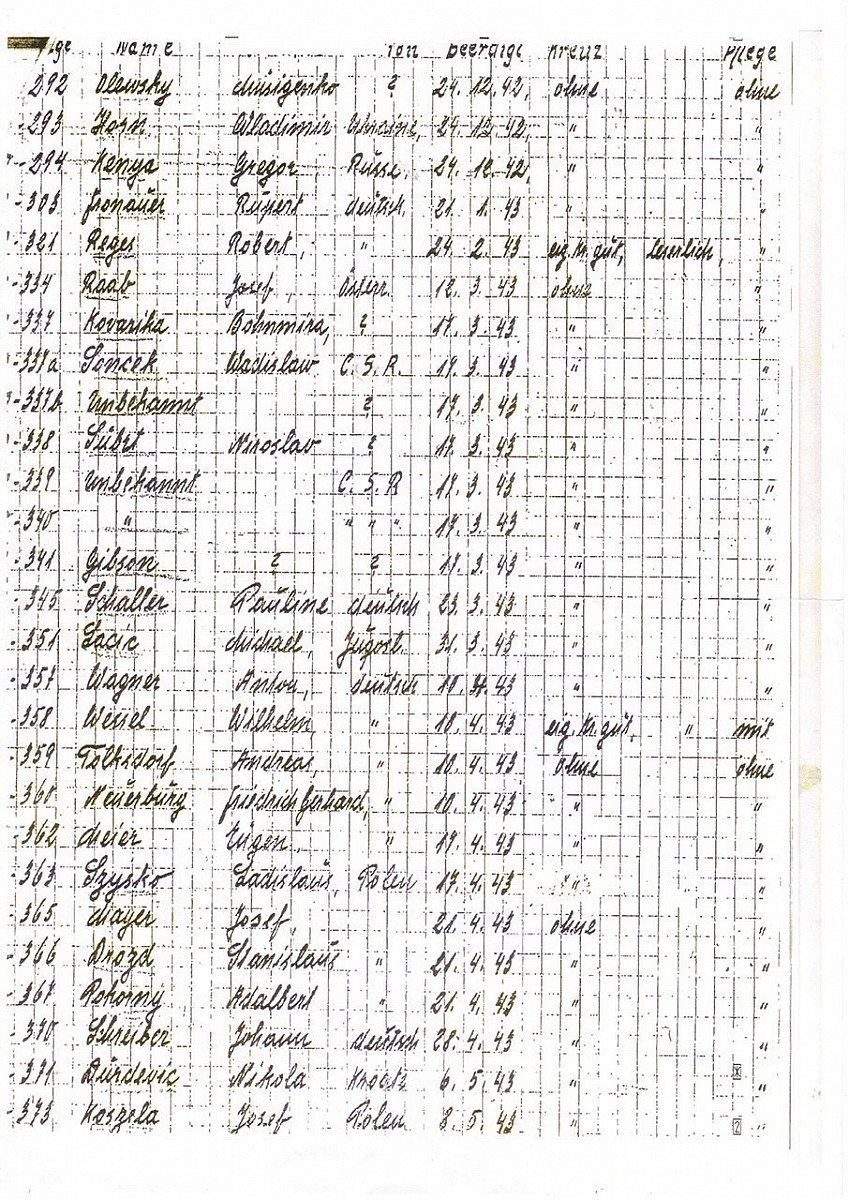 Name ion beerdigt Kreuz Pflege
292 Olewsky Musigenko ? 24. 12. 42, ohne ohne
-293 Horn Wladimir Ukraine, 24. 12. 42, " "
-294 Kenya Gregor Russe, 24. 12. 42, " "
-303 Fronauer Rupert deutsch, 21. 1. 43 " "
-321 Reges Robert, " 24. 2. 43 eig. Kr. gut, Leserlich, "
-334 Raab Josef, Österr. 12. 3. 43 ohne "
-337 Kovarika Bohumira, ? 17. 3. 43 " "
-337a Soncek Wadislaw C. S. R. 17. 3. 43 " "
-337b Unbekannt ? 17. 3. 43 " "
-338 Subrt Miroslav ? 17. 3. 43 " "
-339 Unbekannt C. S. R 17. 3. 43 " "
-340 " " " " 17. 3. 43 " "
-341 Gibson ? ? 17. 3. 43 " "
-345 Schaller Pauline deutsch 23. 3. 43 " "
-351 Lacic Michael, Jugosl. 31. 3. 43 " "
-357 Wagner Anton, deutsch 10. 4. 43 " "
-358 Wessel Wilhelm, " 10. 4. 43 eig. Kr. gut. " mit
-359 Tolksdorf Andreas, " 10. 4. 43 ohne ohne
-360 Neuerburg Friedrich Gerhard, " 10. 4. 43 " "
-362 Meier Eugen, " 17. 4. 43 " "
-363 Szysko Ladislaus, Polen 17. 4. 43 " "
-365 Mayer Josef, 21. 4. 43 ohne "
-366 Drozd Stanislaus " 21. 4. 43 " "
-367 Pokorny Adalbert " 21. 4. 43 " "
-370 Schreiber Johann deutsch 28. 4. 43 " "
-371 Durdevic Nikola Kroate 6. 5. 43 " "
-373 Koszela Josef Polen 8. 5. 43 " "